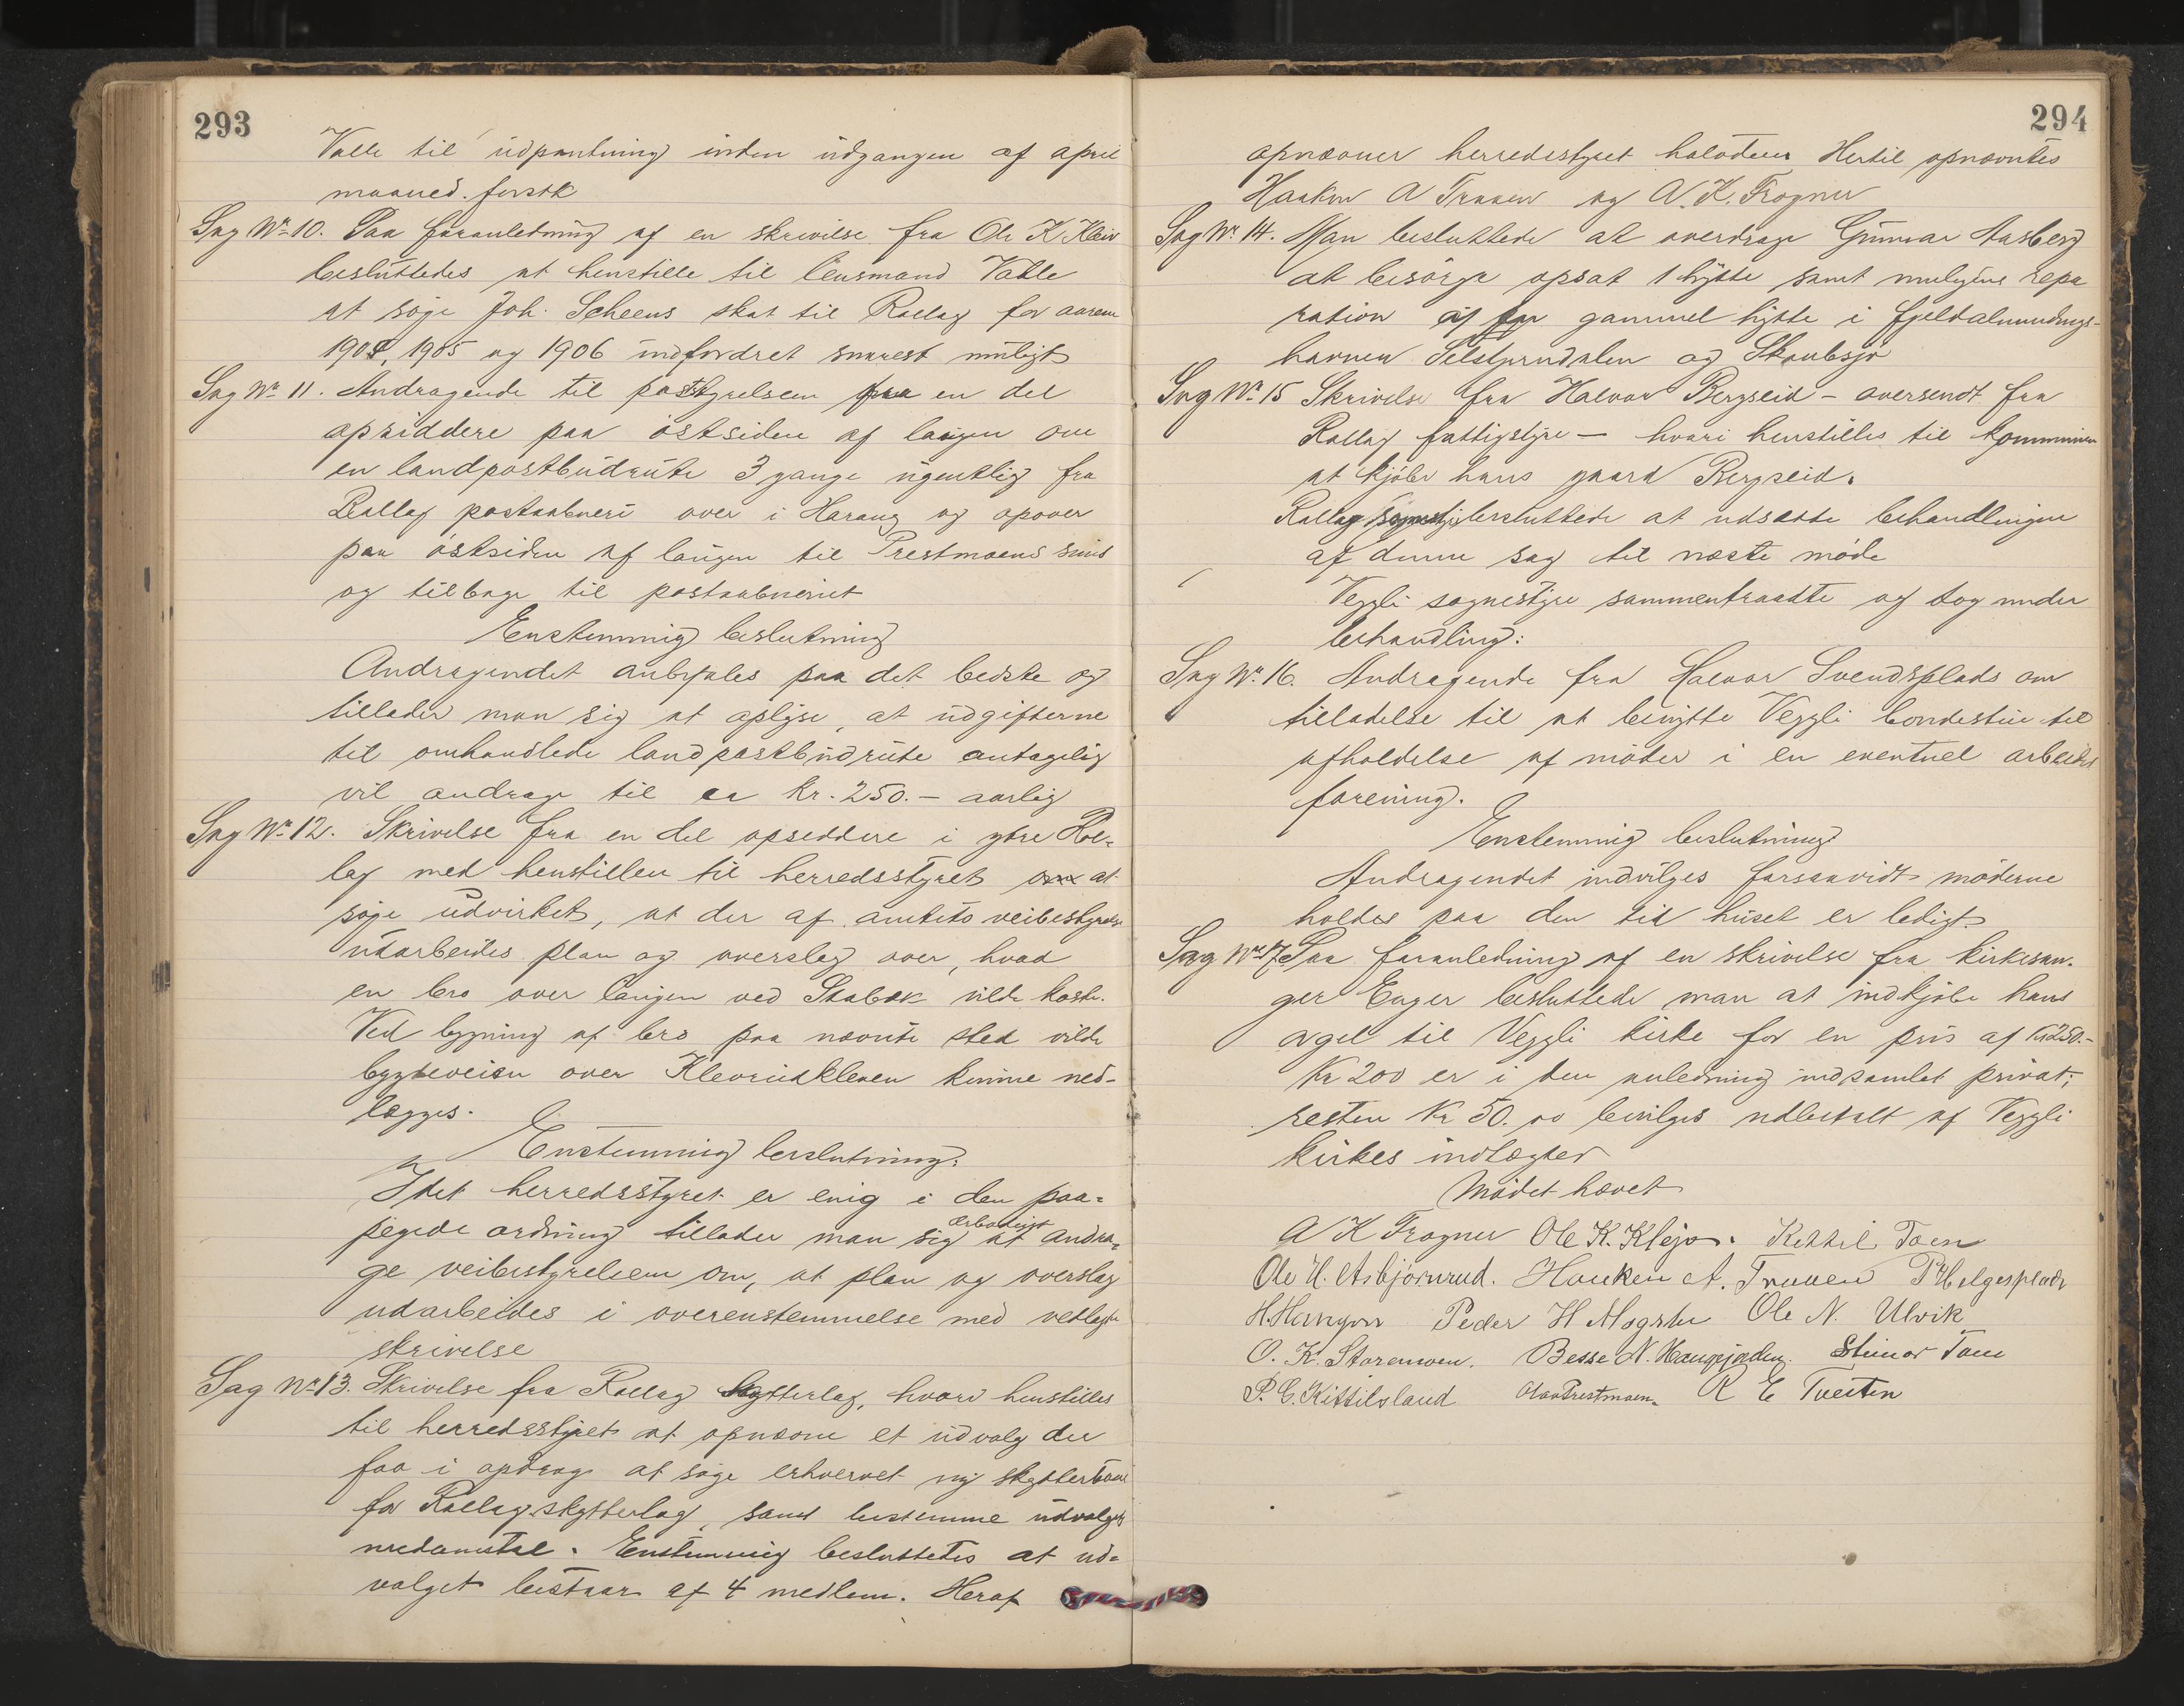 293
Valle til udpantning inden udgangen af april
maaned. forstk
Sag No 10. Paa foranledning af en skrivelse fra Ole K Kleiv
besluttedes at henstille til lensmand Valle
at søge Joh. Scheens skat til Rollag for aarene
1904, 1905 og 1906 indfordret snarest muligt
Sag No 11. Andragende til poststyrelsen fra en del
opsiddere paa østsiden af laagen om
en landpostbudrute 3 gange ugentlig fra
Rollag postaabneri over i Haraug og opover
paa østsiden af laagen til Prestmoens smis
og tilbage til postaabneriet
Enstemmig beslutning
Andragendet anbefales paa det bedste og
tillader man sig at oplyse, at udgifterne
til omhandlede landpostbudrute antagelig
vil andrage til ca kr. 250.- aarlig
Sag No 12. Skrivelse fra en del opsiddere i ytre Rol=
lag med henstillen til herredsstyret om at
søge udvirket, at der af amtets veibestyrelse
udarbeides plan og overslag over, hvad
en bro over laagen ved Stabæk vilde koste.
Ved bygning af bro paa nævnte sted vilde
bygdeveien over Klevrudkleven kunne ned-
lægges.
Enstemmig beslutning:
Idet herredsstyret er enig i den paa=
pegede ordning tillader man sig ærbødigst at andra=
ge veibestyrelsen om, at plan og overslag
udarbeides i overensstemmelse med vedlagte
skrivelse
Sag No 13. Skrivelse fra Rollag skytterlag, hvori henstilles
til herredsstyret at opnævne et udvalg der
faar i opdrag at søge erhvervet ny skytterbane
for Rollag skytterlag, samt bestemme udvalgets
medlemstal. Enstemmig besluttedes at ud=
valget bestaar af 4 medlem. Heraf
294
opnævner herredsstyret halvdelen Hertil opnævntes
Haaken A Traaen og A. K. Frogner
Sag No 14. Man besluttede at overdrage Gunnar Aasberg
at besørge opsat 1 hytte samt muligens repa
ration af gammel hytte i fjeldalmindings-
havnen Selstjerndalen og Skoubsjø
Sag No 15 Skrivelse fra Halvor Bergseid - oversendt fra
Rollag fattigstyre - hvori henstilles til kommunen
at kjøbe hans gaard Bergseid.
Rollag sognestyre besluttede at udsætte behandlingen
af denne sag til næste møde
Veggli sognestyre sammentraadte og tog under
behandling:
Sag No 16. Andragende fra Halvor Svendsplads om
tilladelse til at benytte Veggli bondestue til
afholdelse af møder i en eventuel arbeider
forening.
Enstemmig beslutning
Andragendet indvilges forsaavidt møderne
holdes paa den tid huset er ledigt.
Sag No 17. Paa foranledning af en skrivelse fra kirkesan-
ger Enger besluttede man at indkjøbe hans
orgel til Veggli kirke for en pris af Kr 250.-
Kr 200 er i den anledning indsamlet privat;
resten Kr 50.00 bevilges udbetalt af Veggli
kirkes indtægter
Mødet hævet
A K Frogner Ole K. Klejv. Kittil Toen
Ole H. Asbjørnrud. Haaken A. Traaen P Helgesplads
H. Peder H Mogstu Ole N. Ulvik
O. K. Storemoen. Besse N. Haugejorden. Steinar Toen
P. C. Kittilsland Olav Prestmoen. R E Tveiten